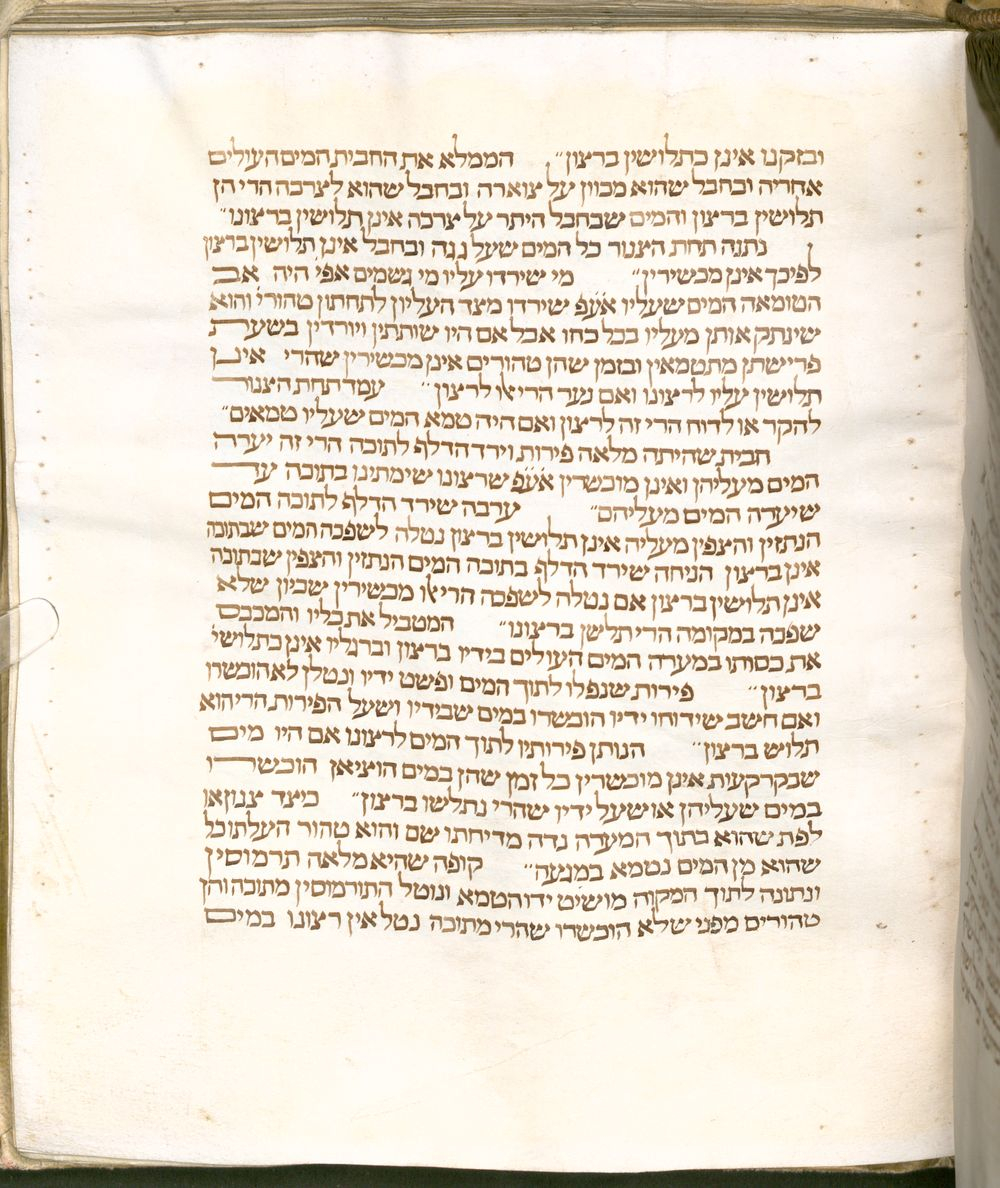 ובזקנו אינן כתלושין ברצון״ הממלא את החבית המים העולים
אחריה ובחבל שהוא מכוון על צוארה ובחבל שהוא לצרכה הרי הן
תלושין ברצון והמים שבחבל היתר על צרכה אינן תלושין ברצונו״
נתנה תחת הצנור כל המים שעל גבה ובחבל אינן תלושין ברצון
לפיכך אינן מכשירין״ מי שירדו עליו מי גשמים אפי׳ היה אב
הטומאה המים שעליו אע״פ שירדו מצד העליון לתחתון טהורי׳ והוא
שינתק אותן מעליו בכל כחו אבל אם היו שותתין ויורדין בשעת
פרישתן מתטמאין ובזמן שהן טהורים אינן מכשירין שהרי אינן
תלושין עליו לרצונו ואם נער הרי או לרצון״ עמד תחת הצנור
להקר או לדוח הרי זה לרצון ואם היה טמא המים שעליו טמאים״
חבית שהיתה מלאה פירות וירד הדלף לתוכה הרי זה יערה
המים מעליהן ואינן מוכשרין אע״פ שרצונו שימתינו בתוכה עד
שיערה המים מעליהם״ ערבה שירד הדלף לתוכה המים
הנתזין והצפין מעליה אינן תלושין ברצון נטלה לשפכה המים שבתוכה
אינן ברצון הניחה שירד הדלף בתוכה המים הנתזין והצפין שבתוכה
אינן תלושין ברצון אם נטלה לשפכה הרי או מכשירין שכיון שלא
שפכה במקומה הרי תלשן ברצונו״ המטביל את כליו והמכבס
את כסותו במערה המים העולים בידיו ברצון וברגליו אינן כתלושי׳
ברצון״ פירות שנפלו לתוך המים ופשט ידיו ונטלן לא הוכשרו
ואם חשב שידוחו ידיו הוכשרו במים שבידיו ושעל הפירות הרי הוא
תלוש ברצון״ הנותן פירותיו לתוך המים לרצונו אם היו מים
שבקרקעות אינן מוכשרין כל זמן שהן במים הוציאן הוכשרו
במים שעליהן או שעל ידיו שהרי נתלשו ברצון״ כיצד צנון או
לפת שהוא בתוך המערה נדה מדיחתו שם והוא טהור העלתו כל
שהוא מן המים נטמא במגעה״ קופה שהיא מלאה תרמוסין
ונתונה לתוך המקוה מושיט ידו הטמא ונוטל התורמוסין מתוכה והן
טהורים מפני שלא הוכשרו שהרי מתוכה נטל אין רצונו במים